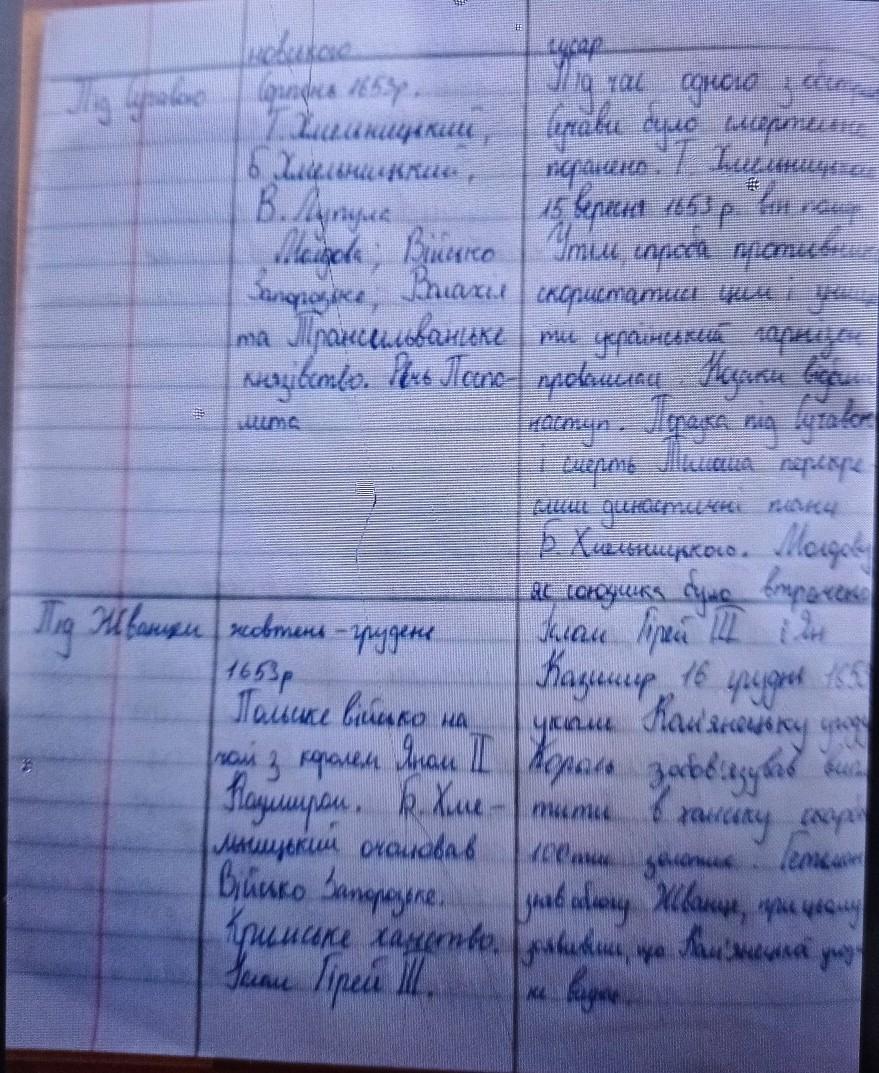 новицкого
гусар
Під Сучавою
Серпень 1653р.
Т. Хмельницький,
Б. Хмельницький,
В. Лупула
Молдова; Військо
Запорозьке; Валахія
та Трансильванське
князівство. Річ Поспо-
лита
Під час одного з
Сучави було смертельно
поранено. Т. Хмельницько
15 вересня 1653 р. він помер
Утім, спроба противник
скористатися цим і
ти український гарнізон
провалилася. Козаки
наступ. Поразка під Сучавою
і смерть Тимоша перекре-
слили династичні плани
Б. Хмельницького. Молдову
як союзника було втрачено
Під Жванцем
жовтень - грудень
1653р
Польське військо на
чолі з королем Яном II
Казимиром. Б. Хме-
льницький очолював
Військо Запорозьке.
Кримське ханство.
Іслам Гірей III.
Іслам Гірей III і Ян
Казимир 16 грудня 165
уклали Кам'янецьку угоду
Король зобов'язував
тити в ханську скарб
100 тис золотих. Гетьман
зняв облогу Жванця, при цьому
заявивши, що Кам'янецької угод
не